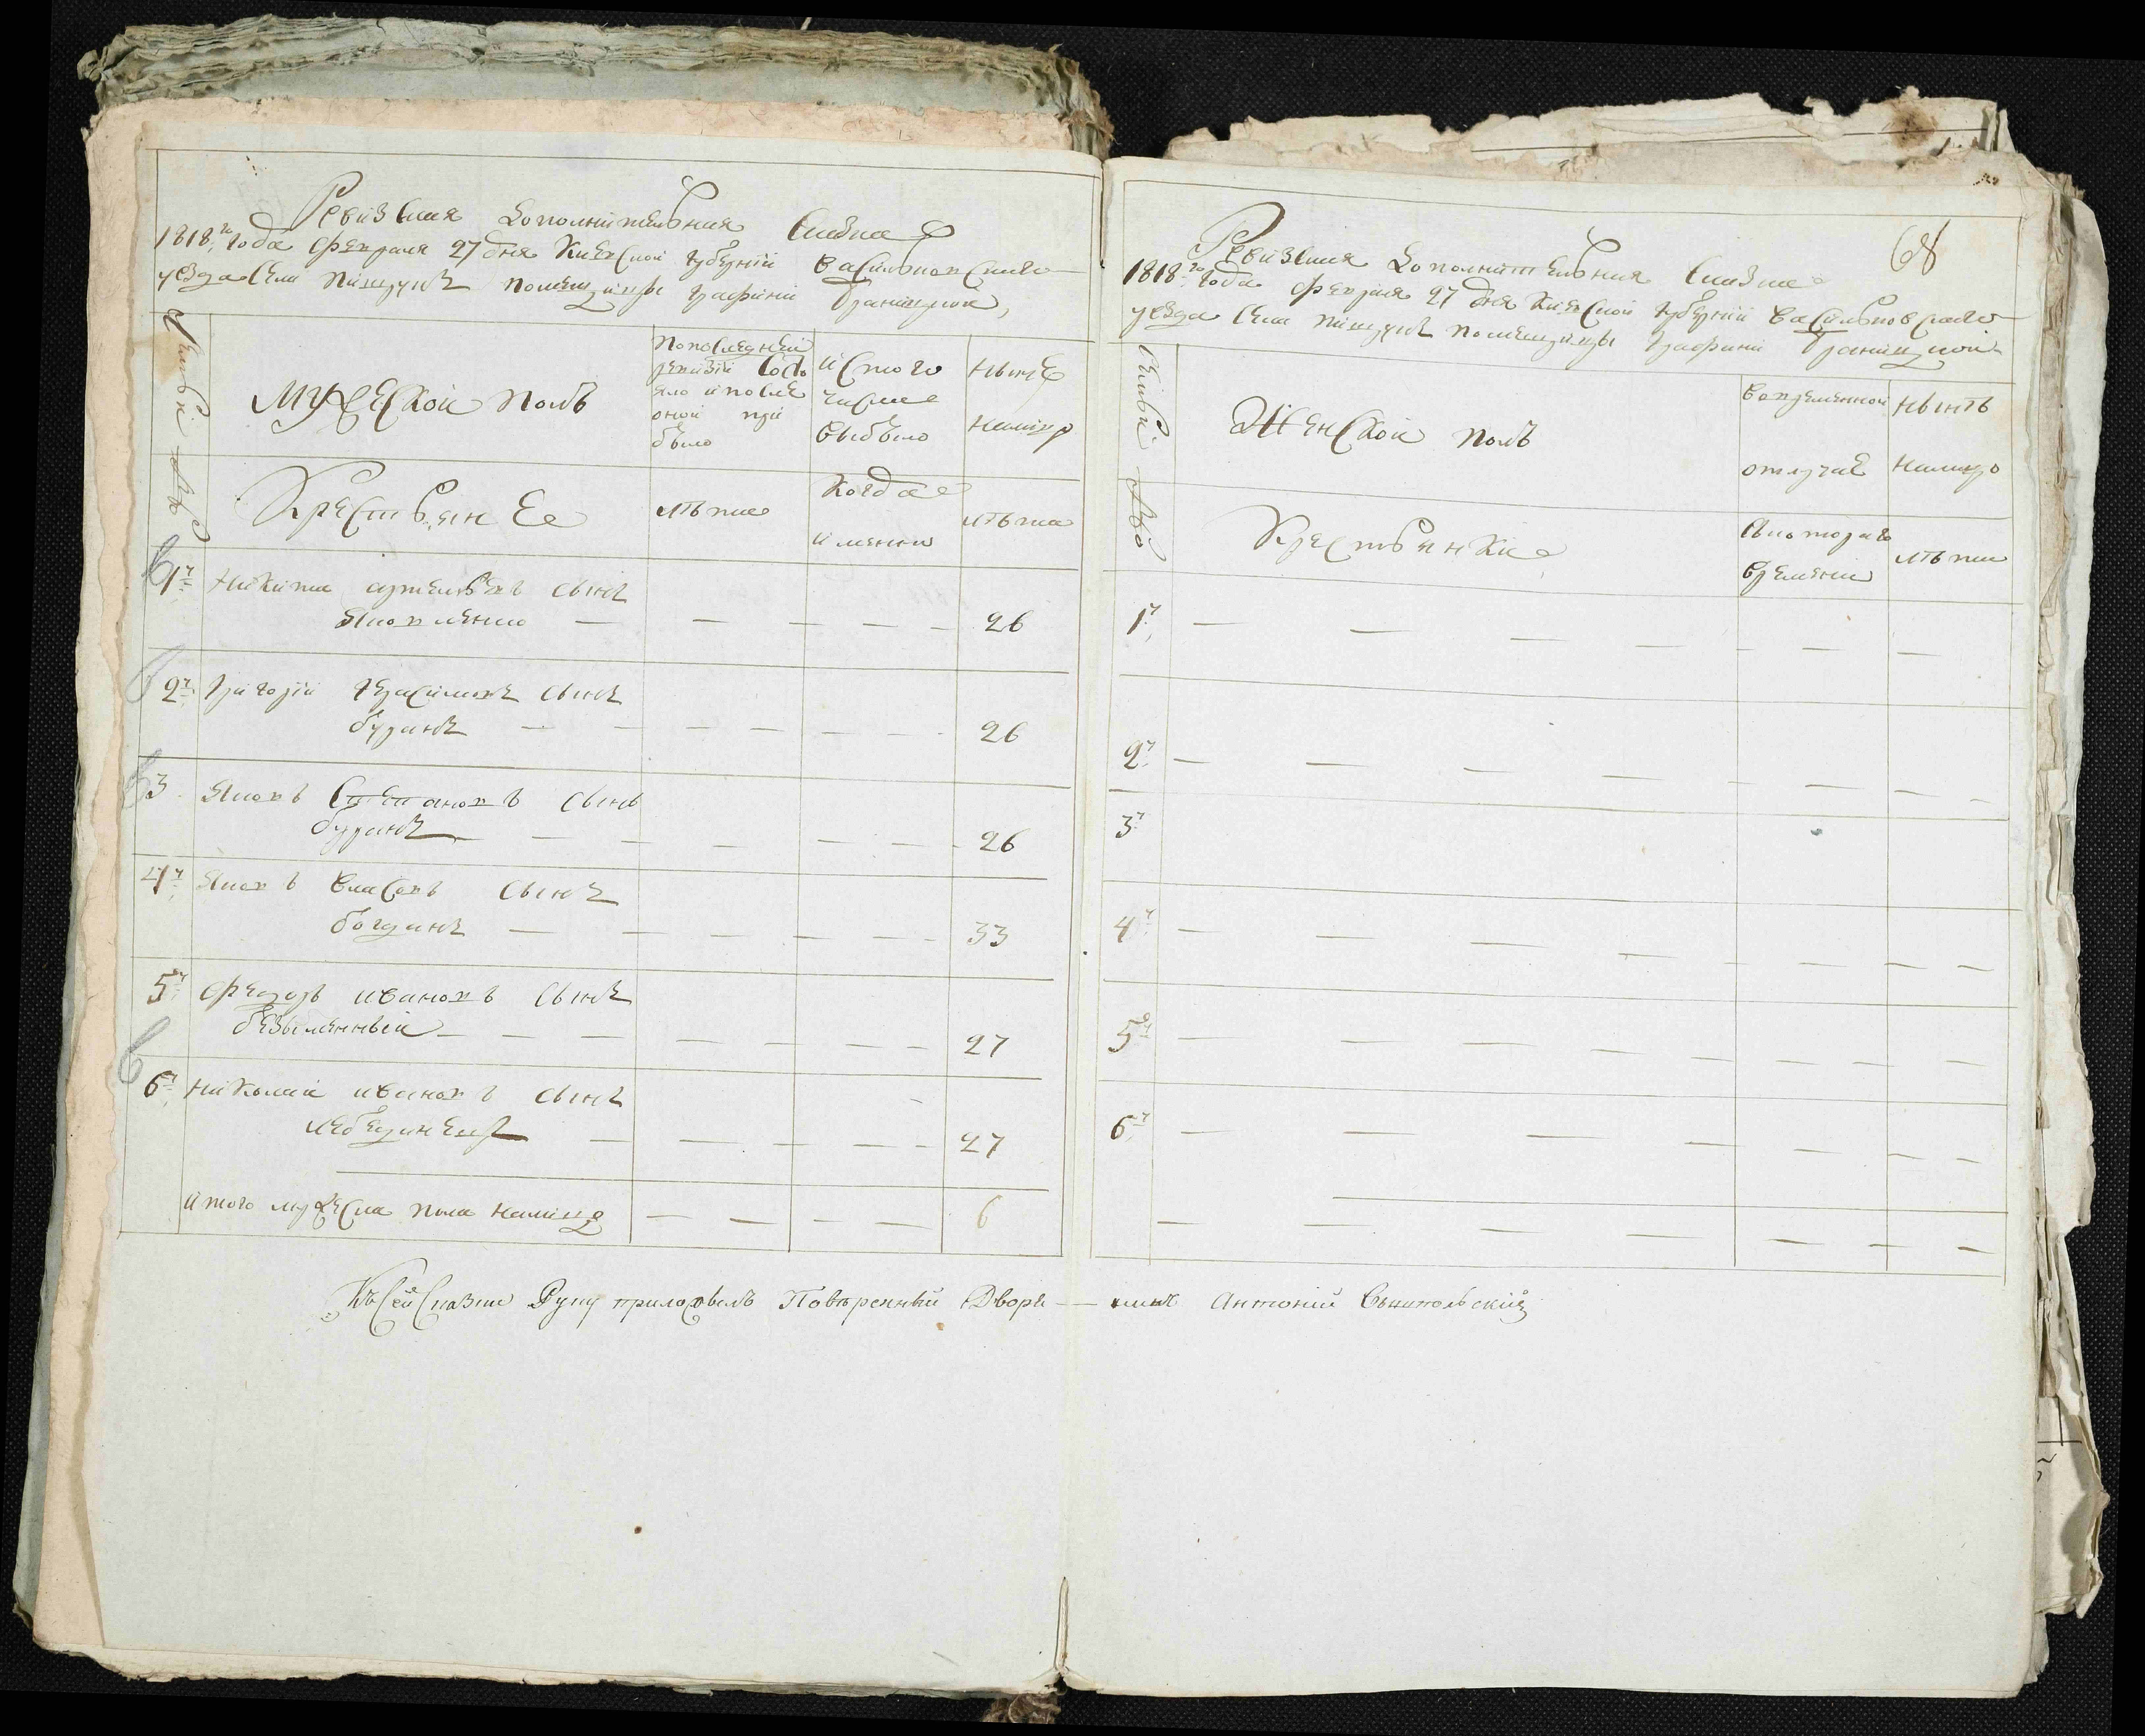 Ревизская Дополнительная Сказка
1818го года февраля 27 дня Киевской губернии Васильковского
уезда села Пищукъ помещицы графини Браницкой,
Семьи №о
Мужеской полъ
По последней
ревизии состо
яло и после
оной при
было
Ис того
числа
выбыло
Ныне
налицо
Крестьяне
лѣта
Когда
именно
лѣта
1й Никита Артемьевъ сынъ
Яковленко 26
2й Григорий Герасимовъ сынъ
Буракъ 26
3 Яковъ Степановъ сынъ
Буракъ 26
4й Яковъ Власовъ сынъ
Богданъ 33
5й Федоръ Ивановъ сынъ
Безыменный 27
6й Николай Ивановъ сынъ
Лебединецъ 27
Итого мужеска пола налицо 6
68
Ревизская Дополнительная Сказка
1818го года февраля 27 дня Киевской губернии Васильковского
уезда села Пищукъ помещицы графини Браницкой
Семьи №о
Женской полъ
Во временной
отлучке
Нынѣ
налицо
Крестьянки
С которого
времени
лѣта
1й
2й
3й
4й
5й
6й
Къ сей сказке руку приложилъ Поверенный Дворянинъ Антоний